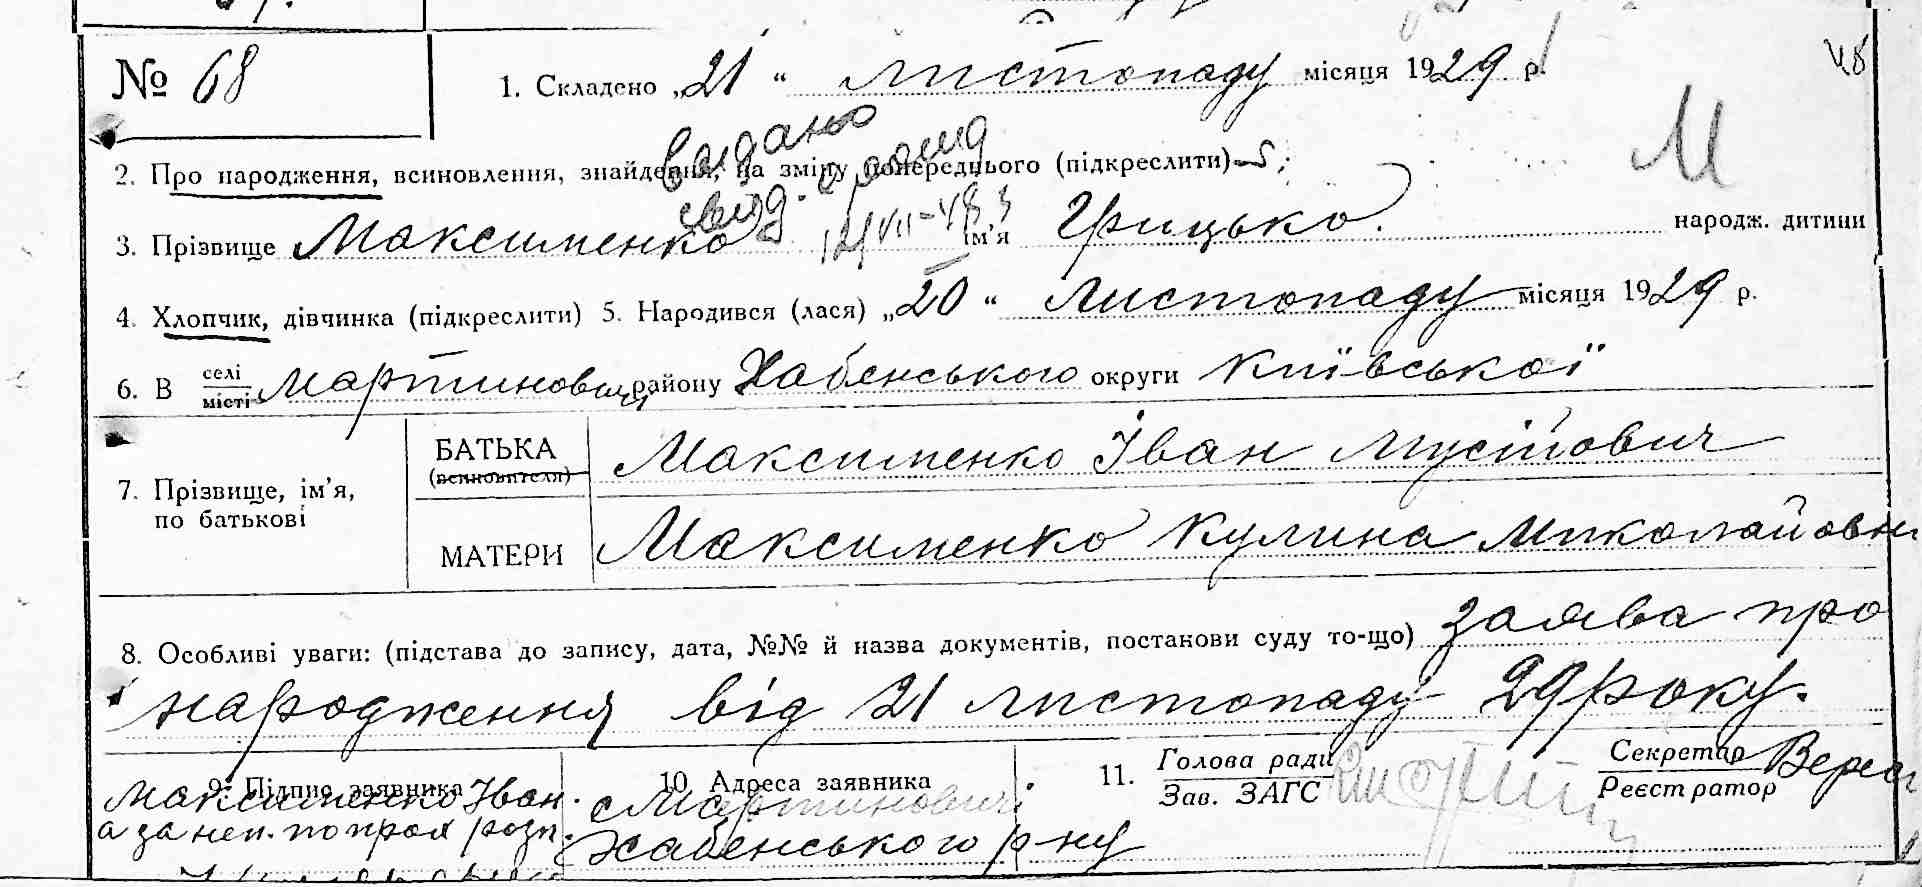 № 68
1. Складено „21“ листопаду місяця 1929 р.
48
М
видано
свід.
2. Про народження, всиновлення, знайдення, на зміну попереднього (підкреслити)
12/VII-48
3. Прізвище Максименко ім’я Грицько. народж. дитини
4. Хлопчик, дівчинка (підкреслити) 5. Народився (лася) „20“ листопаду місяця 1929 р.
6. В селі місті Мартиновичі району Хабенського округи Київської
7. Прізвище, ім’я, по батькові
БАТЬКА (всиновителя) Максименко Іван Мусійович
МАТЕРИ Максименко Кулина Миколайовн
8. Особливі уваги: (підстава до запису, дата, №№ й назва документів, постанови суду то-що) заява про
народження від 21 листопаду 29 року.
9. Підпис заявника
Максименко Іван.
а за неп. по прох розп.
10. Адреса заявника
с Мартиновичі
Хабенського р-ну
11. Голова ради
Зав. ЗАГС
Секретар
Реєстратор